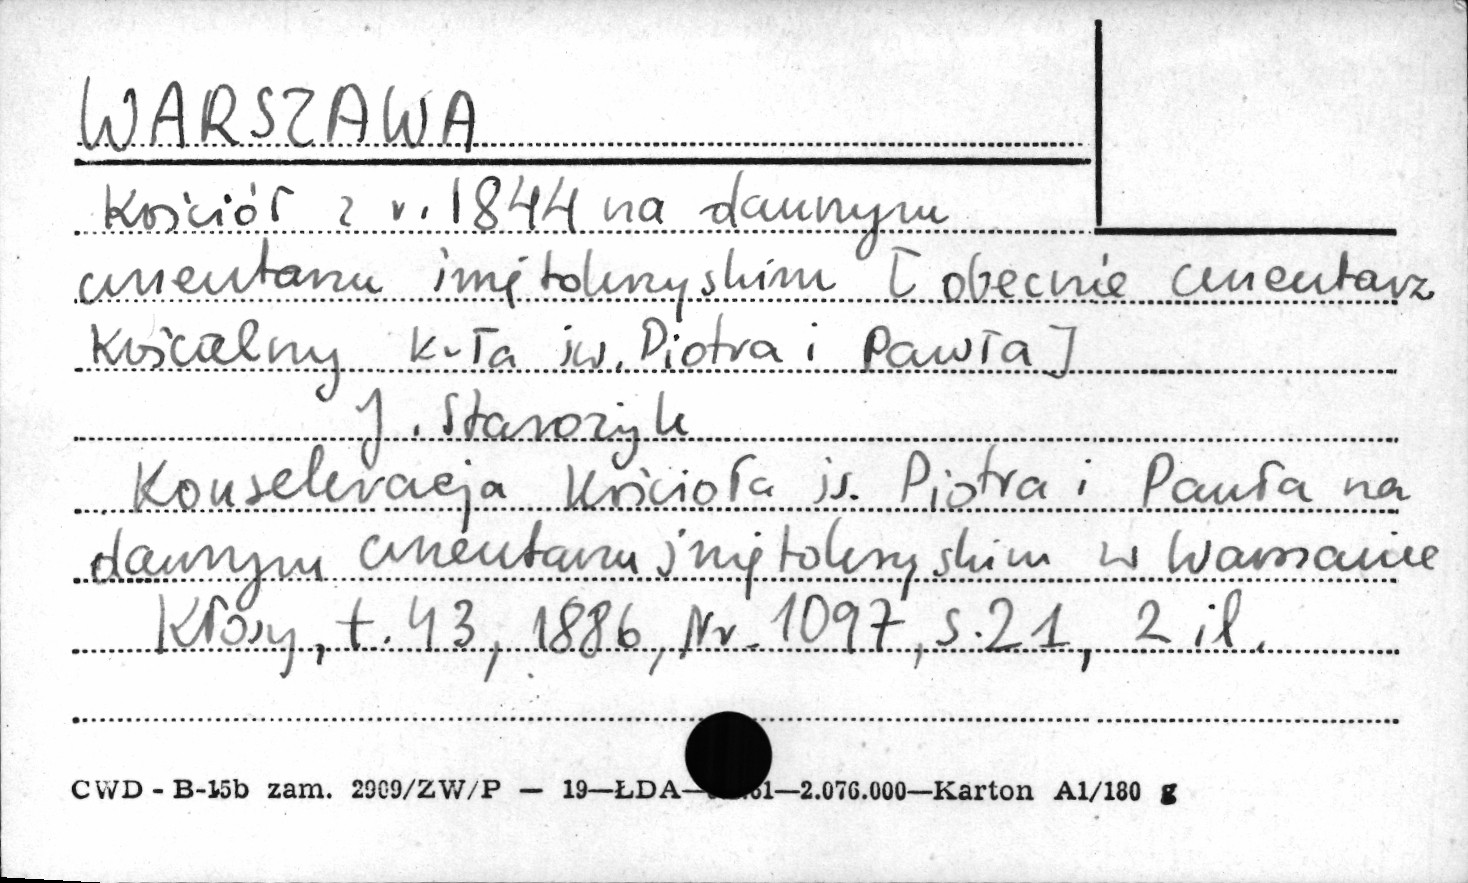 WARSZAWA
Kościół z r. 1844 na dawnym
cmentarzu świętokrzyskim [obecnie cmentarz
kościelny k-ła św. Piotra i Pawła]
J. Starożyk
Konsekracja kościoła św. Piotra i Pawła na
dawnym cmentarzu świętokrzyskim w Warszawie
Kłosy, t. 43, 1886, Nr. 1097, s. 21, 2 il.
CWD - B-15b zam. 2909/ZW/P — 19—ŁDA— 61—2.076.000—Karton A1/180 g